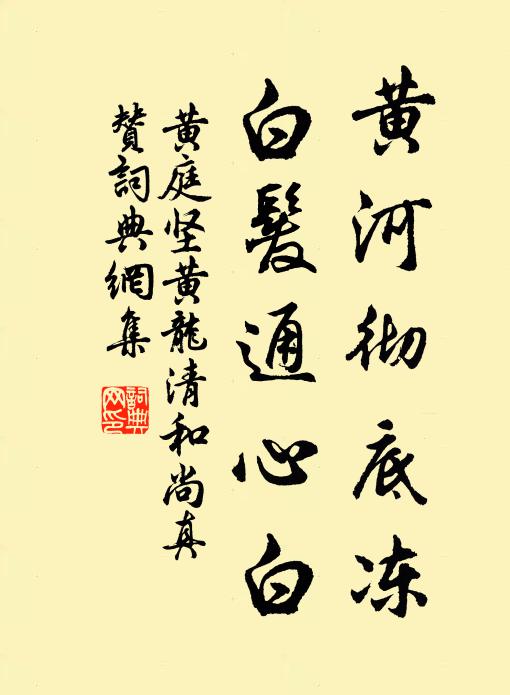 黄河彻底冻
白髮通心白
黄庭坚黄龍清和尚真
赞詞典網集
詞典
网印